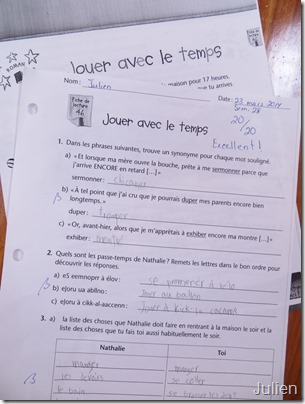 ROMAN
Jouer avec le temps
Nom: Julien
maison pour 17 heures,
que tu arrives
Date: 23 mars 2011
Sem. 28
Fiche de lecture 46
Jouer avec le temps
20/20
Excellent!
1. Dans les phrases suivantes, trouve un synonyme pour chaque mot souligné.
a) «Et lorsque ma mère ouvre la bouche, prête à me sermonner parce
que j'arrive ENCORE en retard [...]»
sermonner: chicaner
b) «À tel point que j'ai cru que je pourrais duper mes parents encore bien
longtemps.»
duper: tromper
c) «Or, avant-hier, alors que je m'apprêtais à exhiber encore ma montre [...]»
exhiber: montré
2. Quels sont les passe-temps de Nathalie? Remets les lettres dans le bon ordre pour
découvrir les réponses.
a) eS eemnoprr à élov: se promener à vélo
b) eJoru ua abllno: Jouer au ballon
c) eJoru à cikk-al-aaccenn: Jouer à kick-la-cacanne
3. a) la liste des choses que Nathalie doit faire en rentrant à la maison le soir et la
liste des choses que tu fais toi aussi habituellement le soir.
Nathalie Toi
manger manger
les devoirs se coller
le bain
Julien